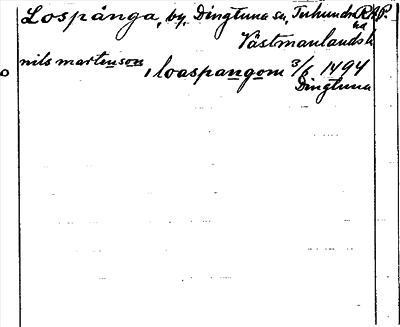 Lospånga, by, Dingtuna sn, Tuhundra RAP.
hd
Västmanlands l.
o nils martenson, i loaspangom 3/6 1494
Dingtuna